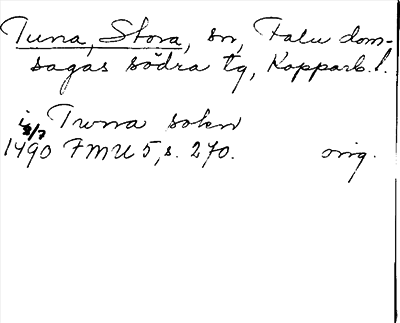 Tuna, Stora, sn, Falu dom-
sagas södra tg, Kopparb. l.
i Twna sokn
3/7
1490 FMU 5, s. 270. orig.